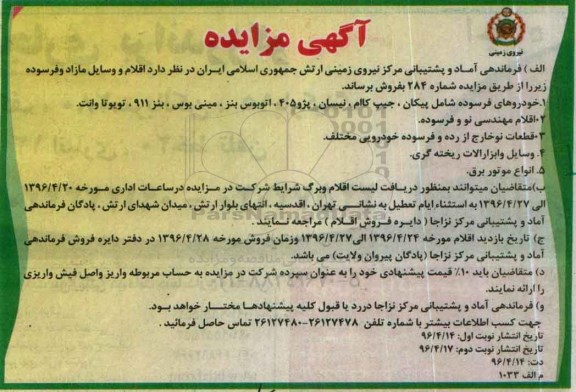 آگهی مزایده
نیروی زمینی
الف ) فرماندهی آماد و پشتیبانی مرکز نیروی زمینی ارتش جمهوری اسلامی ایران در نظر دارد اقلام و وسایل مازاد وفرسوده
زیررا از طریق مزایده شماره ۲۸۴ بفروش برساند.
۱.خودروهای فرسوده شامل پیکان ، جیپ کاام ، نیسان ، پژو۴۰۵ ، اتوبوس بنز ، مینی بوس ، بنز ۹۱۱ ، تویوتا وانت.
۲-اقلام مهندسی نو و فرسوده.
۳-قطعات نوخارج از رده و فرسوده خودرویی مختلف.
۴. وسایل وابزارالات ریخته گری.
۵. انواع موتور برق.
ب)متقاضیان میتوانند بمنظور دریافت لیست اقلام وبرگ شرایط شرکت در مزایده درساعات اداری مورخه ۱۳۹۶/۴/۲۰
الی ۱۳۹۶/۴/۲۷ به استثناء ایام تعطیل به نشانی تهران ، اقدسیه ، انتهای بلوار ارتش ، میدان شهدای ارتش ، پادگان فرماندهی
آماد و پشتیبانی مرکز نزاجا ( دایره فروش اقلام ) مراجعه نمایند .
ج) تاریخ بازدید اقلام مورخه ۱۳۹۶/۴/۲۴ الی۱۳۹۶/۴/۲۷ وزمان فروش مورخه ۱۳۹۶/۴/۲۸ در دفتر دایره فروش فرماندهی
آماد و پشتیبانی مرکز نزاجا (پادگان پیروان ولایت) می باشد.
د) متقاضیان باید ۱۰٪ قیمت پیشنهادی خود را به عنوان سپرده شرکت در مزایده به حساب مربوطه واریز واصل فیش واریزی
را ارائه نمایند.
و) فرماندهی آماد و پشتیبانی مرکز نزاجا دررد یا قبول کلیه پیشنهادها مختار خواهد بود.
جهت کسب اطلاعات بیشتر با شماره تلفن ۲۶۱۲۷۴۷۸-۲۶۱۲۷۴۸۰ تماس حاصل فرمائید .
تاریخ انتشار نوبت اول: ۹۶/۴/۱۴
تاریخ انتشار نوبت دوم: ۹۶/۴/۱۷
دت: ۹۶/۴/۱۴
م الف ۱۰۳۳